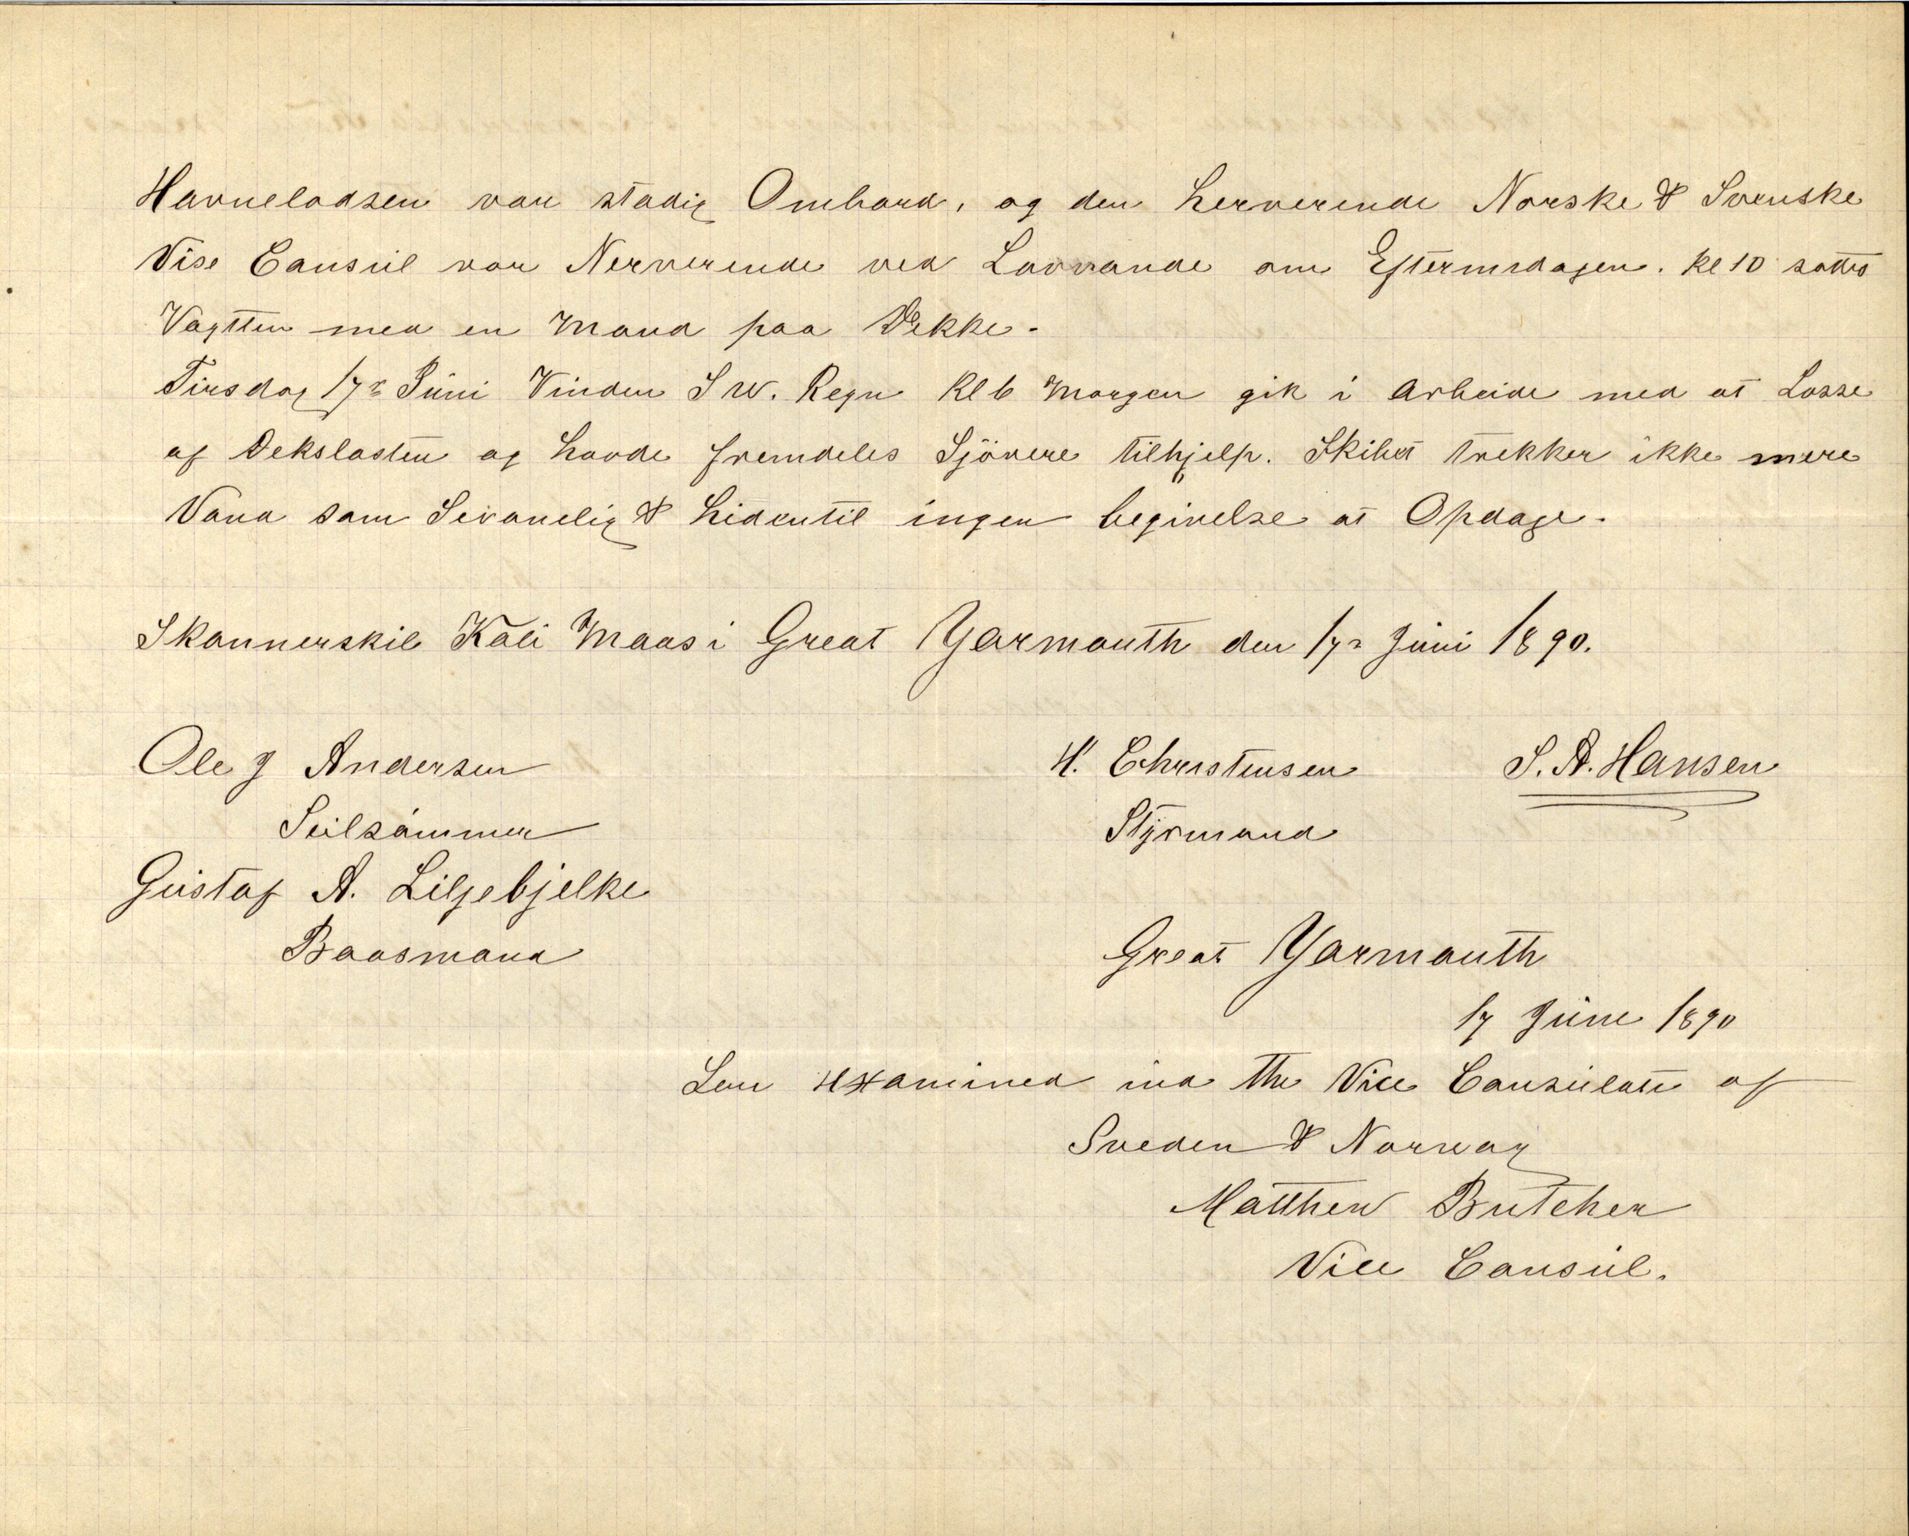 Havnelodsen var stadig Ombord, og den herverende Norske & Svenske
Vise Consül var Nerverende ved Lavvande om Eftermidagen. Kl 10 sattes
Vagtten med en Mand paa Dekke.
Tirsdag 17de Jüni Vinden S W. Regn Kl 6 Morgen gik i Arbeide med at Losse
af Dekslasten og havde fremdeles Sjövere tilhjelp. Skibet trekker ikke mere
Vand som Sevanelig & hidentil ingen begivelse at Opdage.
Skonnerskib Kali Maas i Great Yarmouth den 17de Jüni 1890.
Ole J Andersen H. Christensen S. A. Hansen
Seilsømmer Styrmand
Güstaf A. Liljebjelke
Baasmand Great Yarmouth
17 Jüne 1890
examined the Vice Consülate of
Sveden & Norway
Matthew Butcher
Vice Consül.